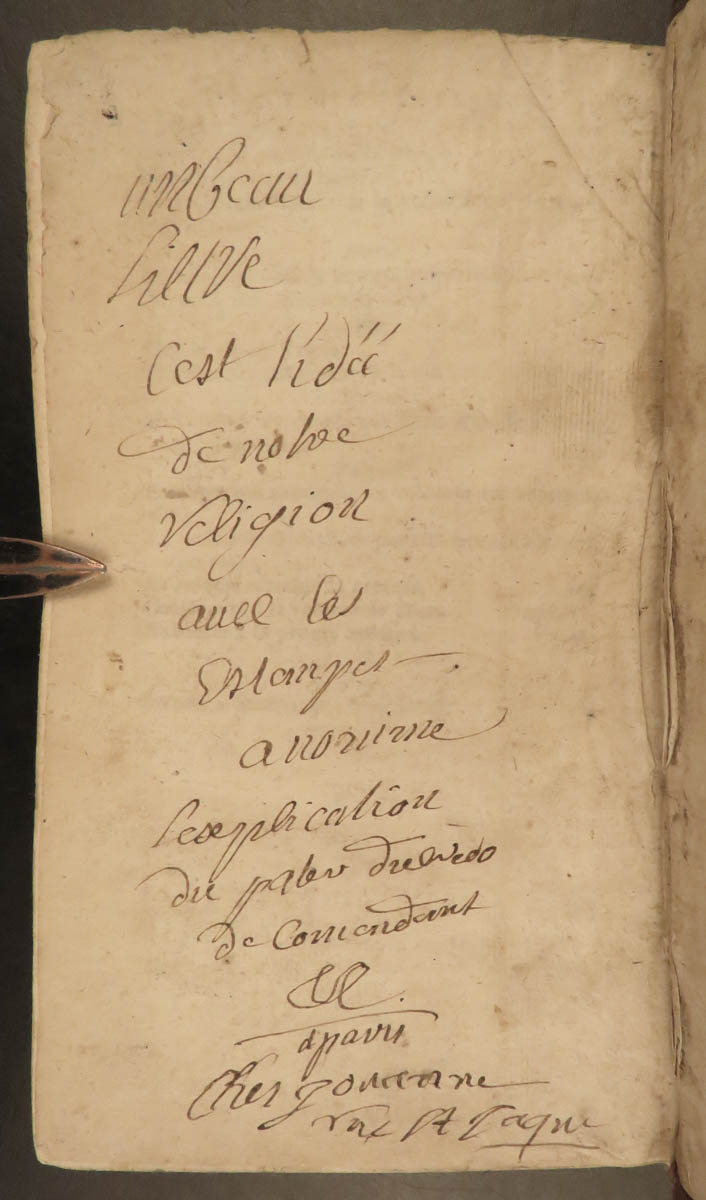 un beau
Liltre
C'est l'idéé
de notre
religion
avec les
Estampes
anonime
Lexplication
du pater du crédo
de Comendant
&c.
aparis
Ches gouverne
rue St Jaque